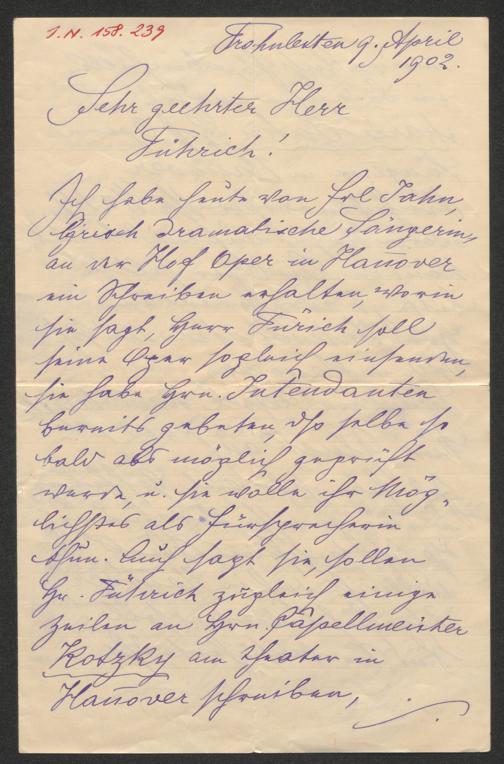 I.N. 158.239
Frohnleiten 9. April
1902.
Sehr geehrter Herr
Führich!
Ich habe heute von Frl Jahn,
lyrisch dramatische Sängerin,
an der Hof Oper in Hanover
ein Schreiben erhalten, worin
sie sagt, Herr Fürich soll
seine Oper sogleich einsenden,
sie habe Hrn. Intendanten
bereits gebeten, dß selbe so
bald als möglich geprüft
werde, u. sie wolle ihr Mög-
lichstes als Fürsprecherin
thun. Auch sagt sie, sollen
Hr. Führich zugleich einige
Zeilen an Hrn. Capellmeister
Kotzky am Theater in
Hanover schreiben,